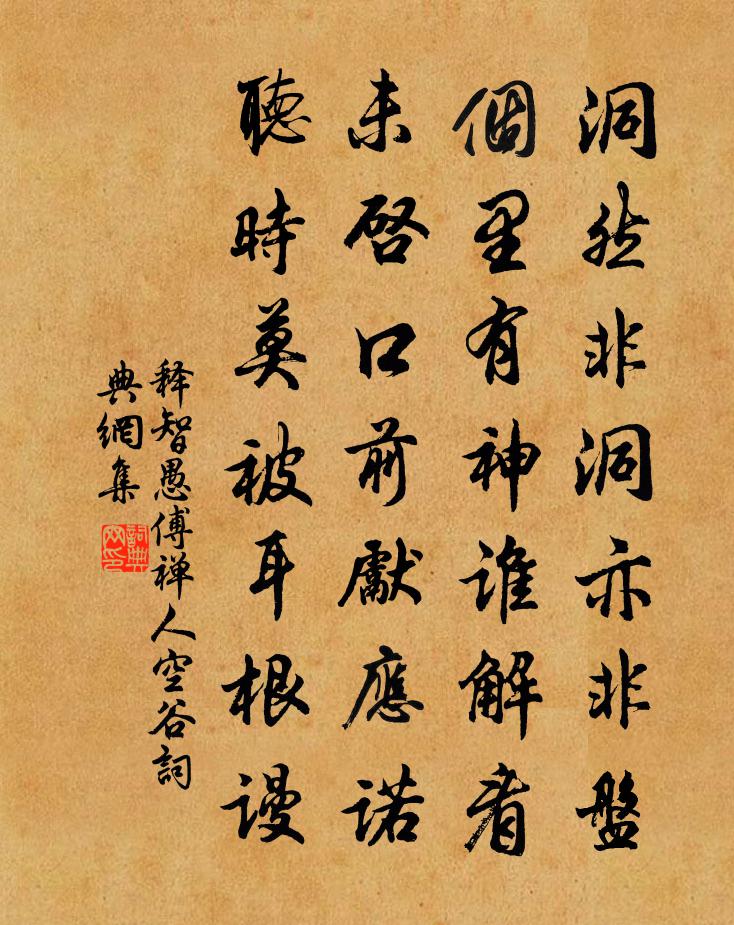 洞然非洞亦非盤
個里有神谁解看
未啓口前獻應诺
聽時莫被耳根谩
释智愚傅禅人空谷詞
典網集
詞典
网印